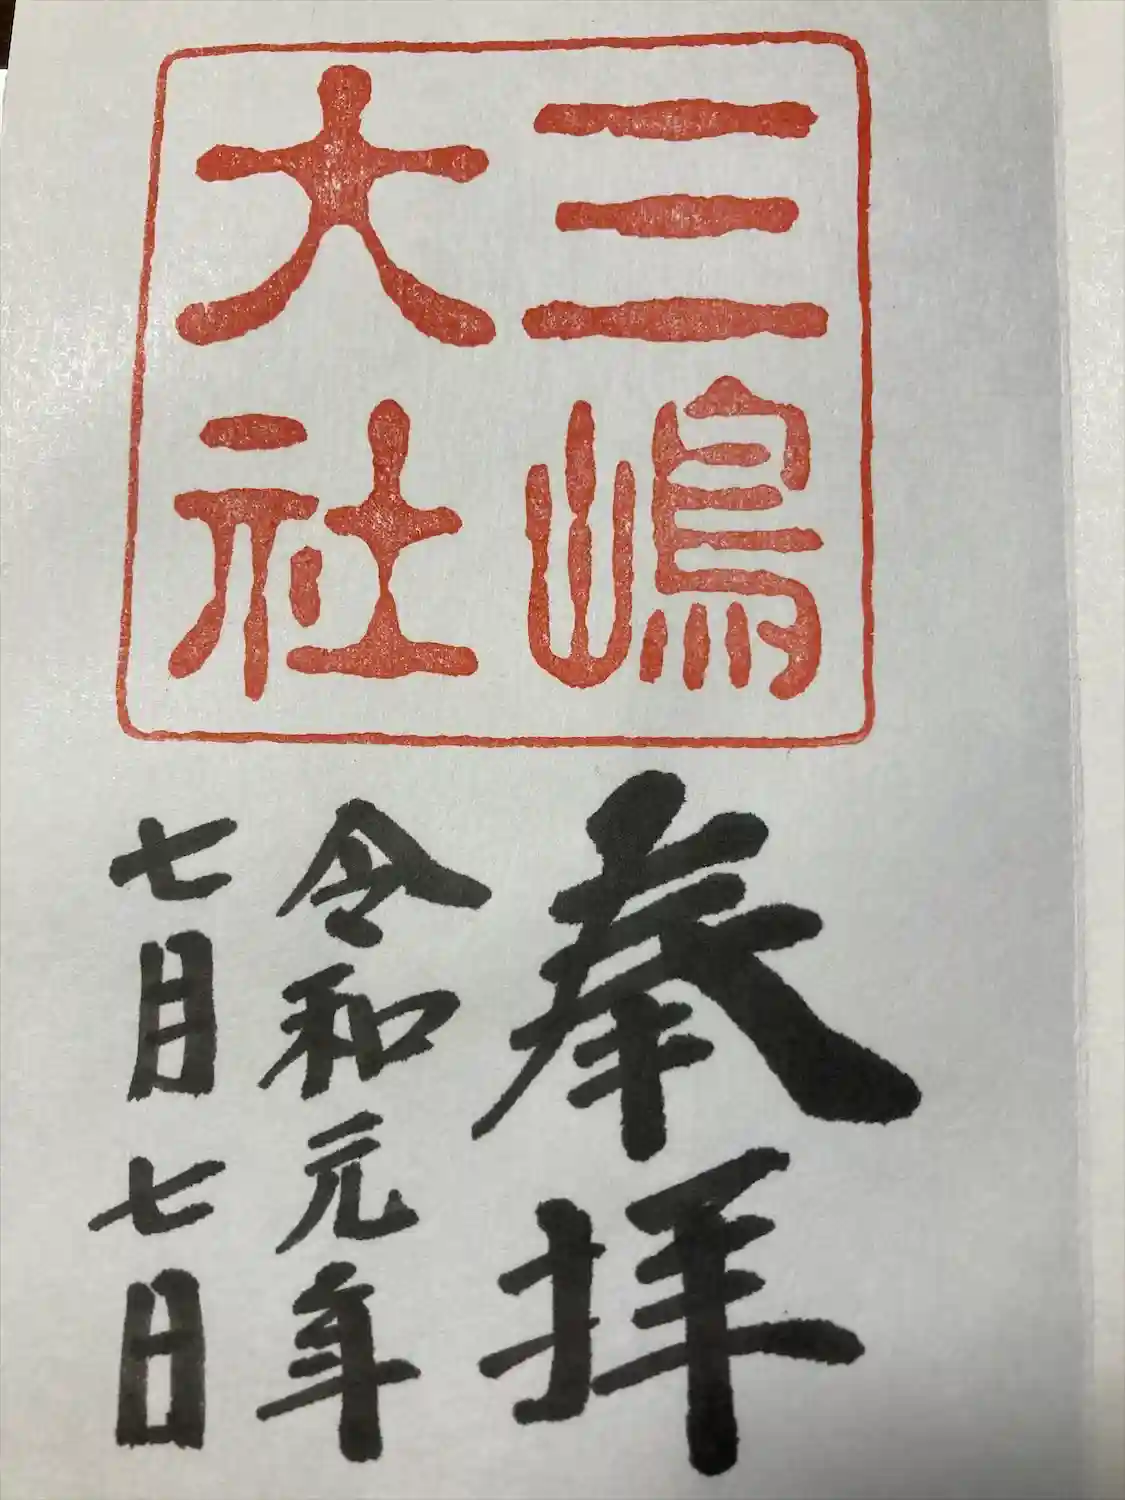 三嶋
大社
奉拝
令和元年
七月七日